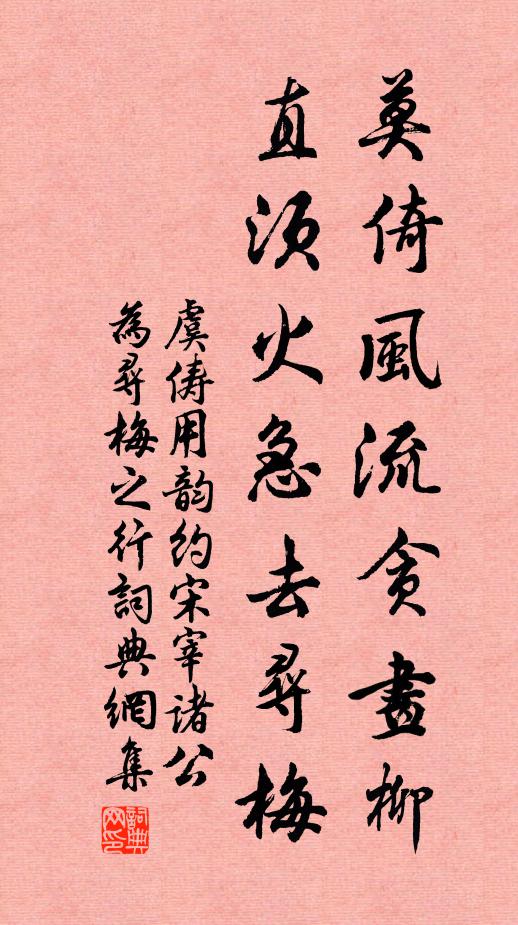 莫倚風流貪畫柳
直須火急去尋梅
虞儔用韵約宋宰諸公
為尋梅之行詞典網集
詞典网印